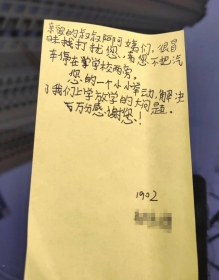 亲爱的叔叔阿姨们,很冒
昧我打扰您,若您不把汽
车停在掌学校两旁,
您的一个小小举动,解决
了我们上学放学的大问题.
百万分感谢您!
1902